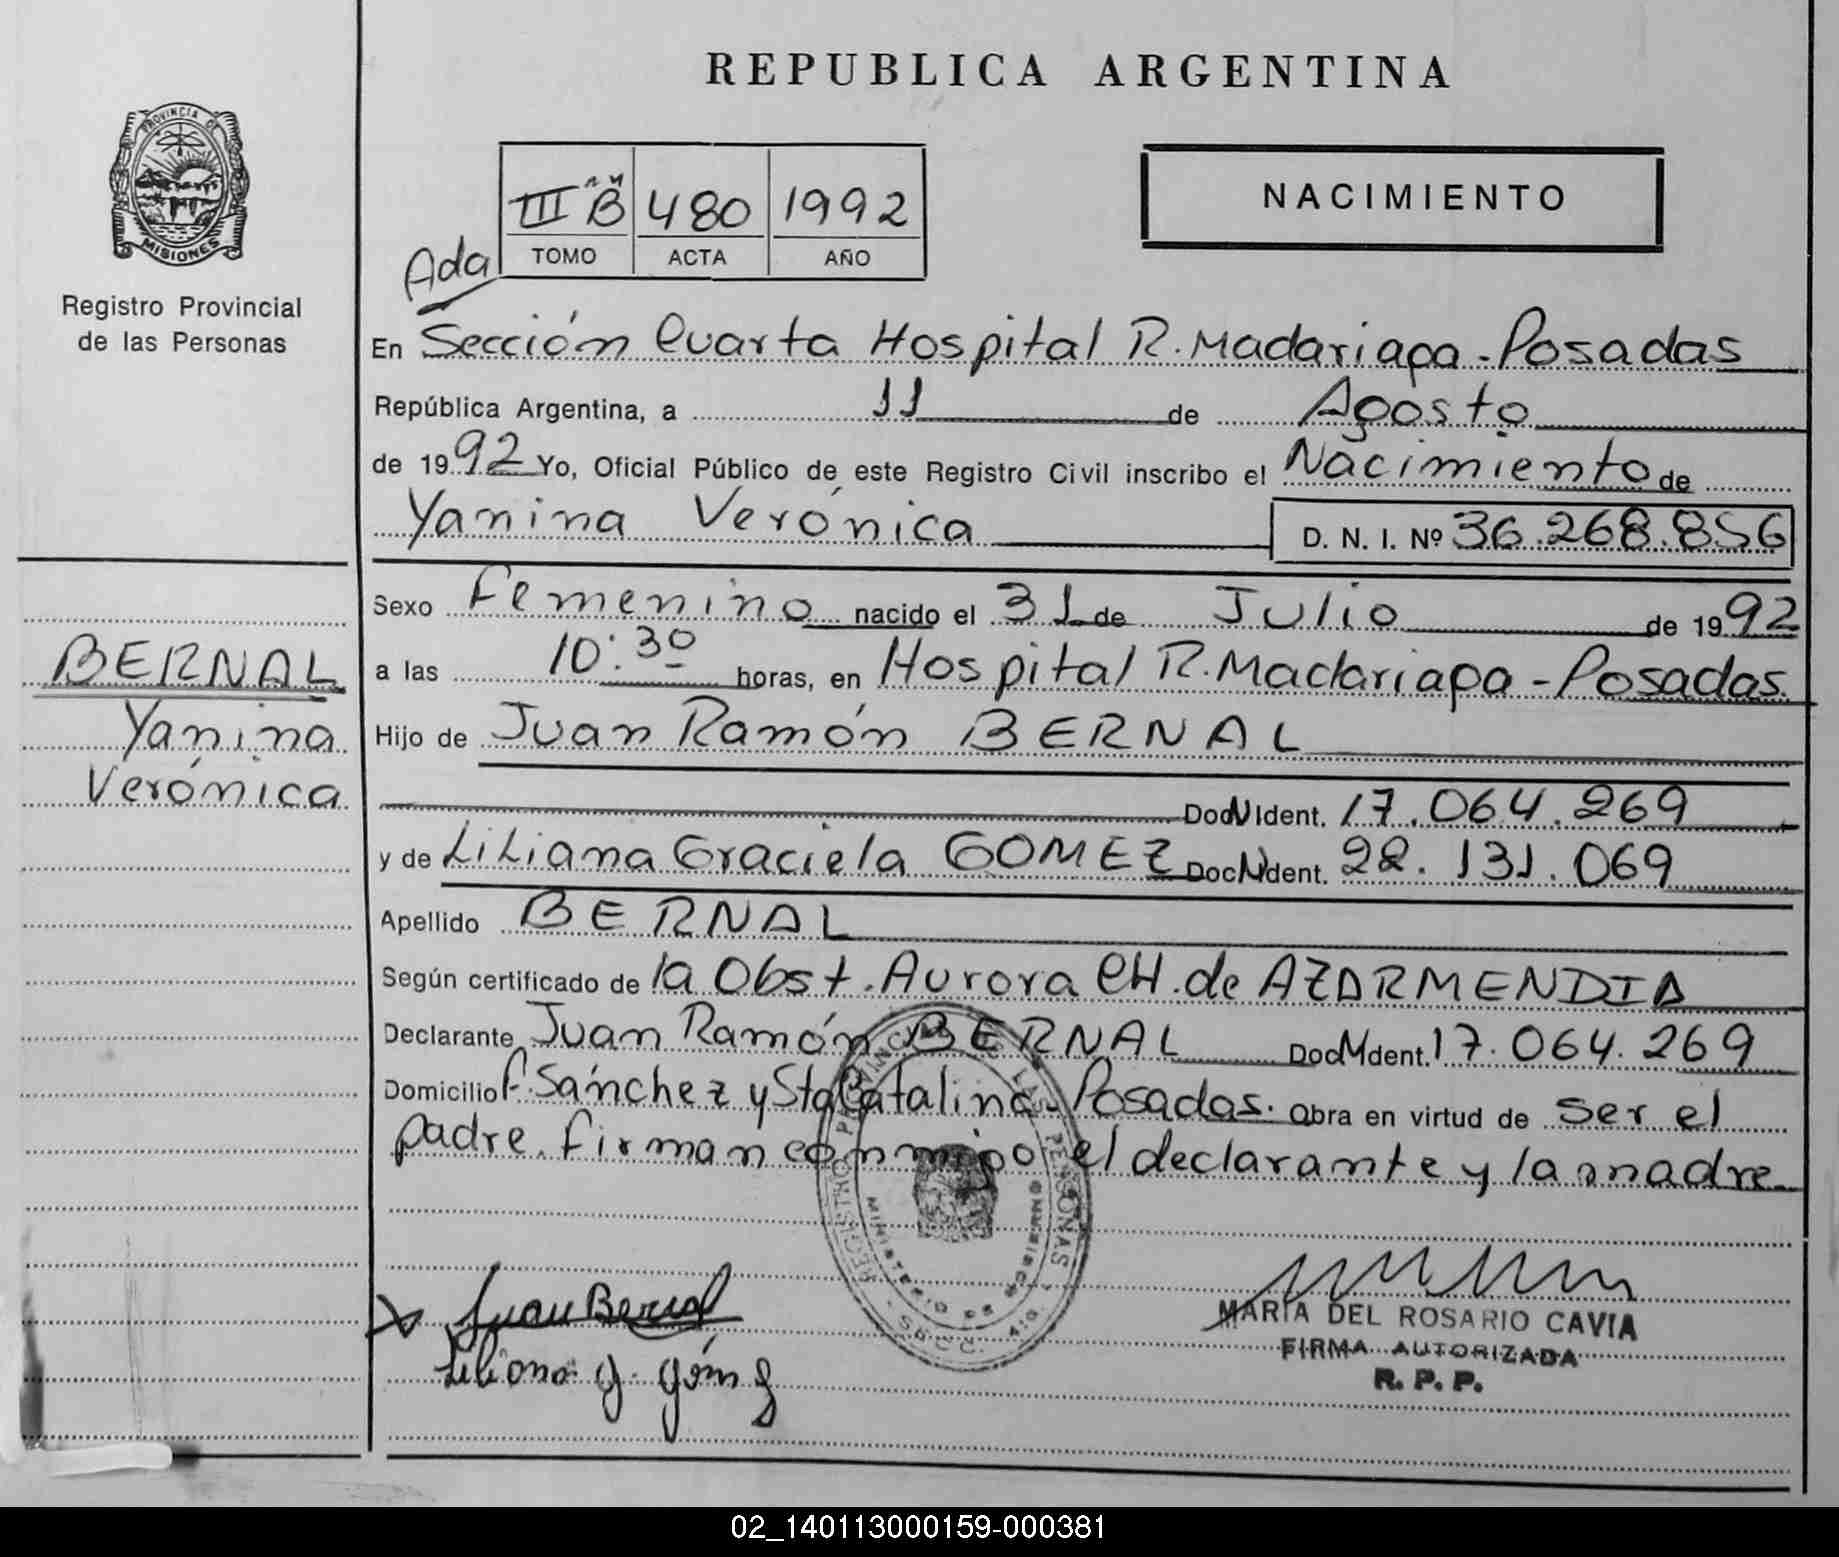 REPUBLICA ARGENTINA
PROVINCIA DE
MISIONES
Registro Provincial
de las Personas
III "B" 480 1992
TOMO ACTA AÑO
NACIMIENTO
Ada
En Sección Cuarta Hospital R. Madariaga - Posadas
República Argentina, a 11 de Agosto
de 1992 Yo, Oficial Público de este Registro Civil inscribo el Nacimiento de
Yanina Verónica D. N. I. Nº 36.268.856
Sexo Femenino nacido el 31 de Julio de 1992
a las 10:30 horas, en Hospital R. Madariaga - Posadas.
Hijo de Juan Ramón BERNAL
Doc Ident. 17.064.269
y de Liliana Graciela GOMEZ Doc Ident. 22.131.069
Apellido BERNAL
Según certificado de la Obst. Aurora CH. de AZARMENDIA
Declarante Juan Ramón BERNAL Doc Ident. 17.064.269
Domicilio F. Sánchez y Sta Catalina - Posadas. Obra en virtud de ser el
padre. Firman conmigo el declarante y la madre
BERNAL
Yanina
Verónica
REGISTRO PROVINCIAL DE LAS PERSONAS
MINISTERIO DE GOBIERNO
Juan Bernal
Liliana G. Gómez
MARIA DEL ROSARIO CAVIA
FIRMA AUTORIZADA
R. P. P.
02_140113000159-000381